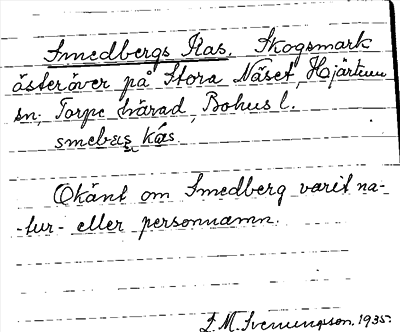 Smedbergs Kas. Skogsmark
österöver på Stora Näset, Hjärtum
sn; Torpe härad, Bohus l.
smebæs kás
Okänt om Smedberg varit na-
tur- eller personnamn.
M. Svenungsson. 1935.